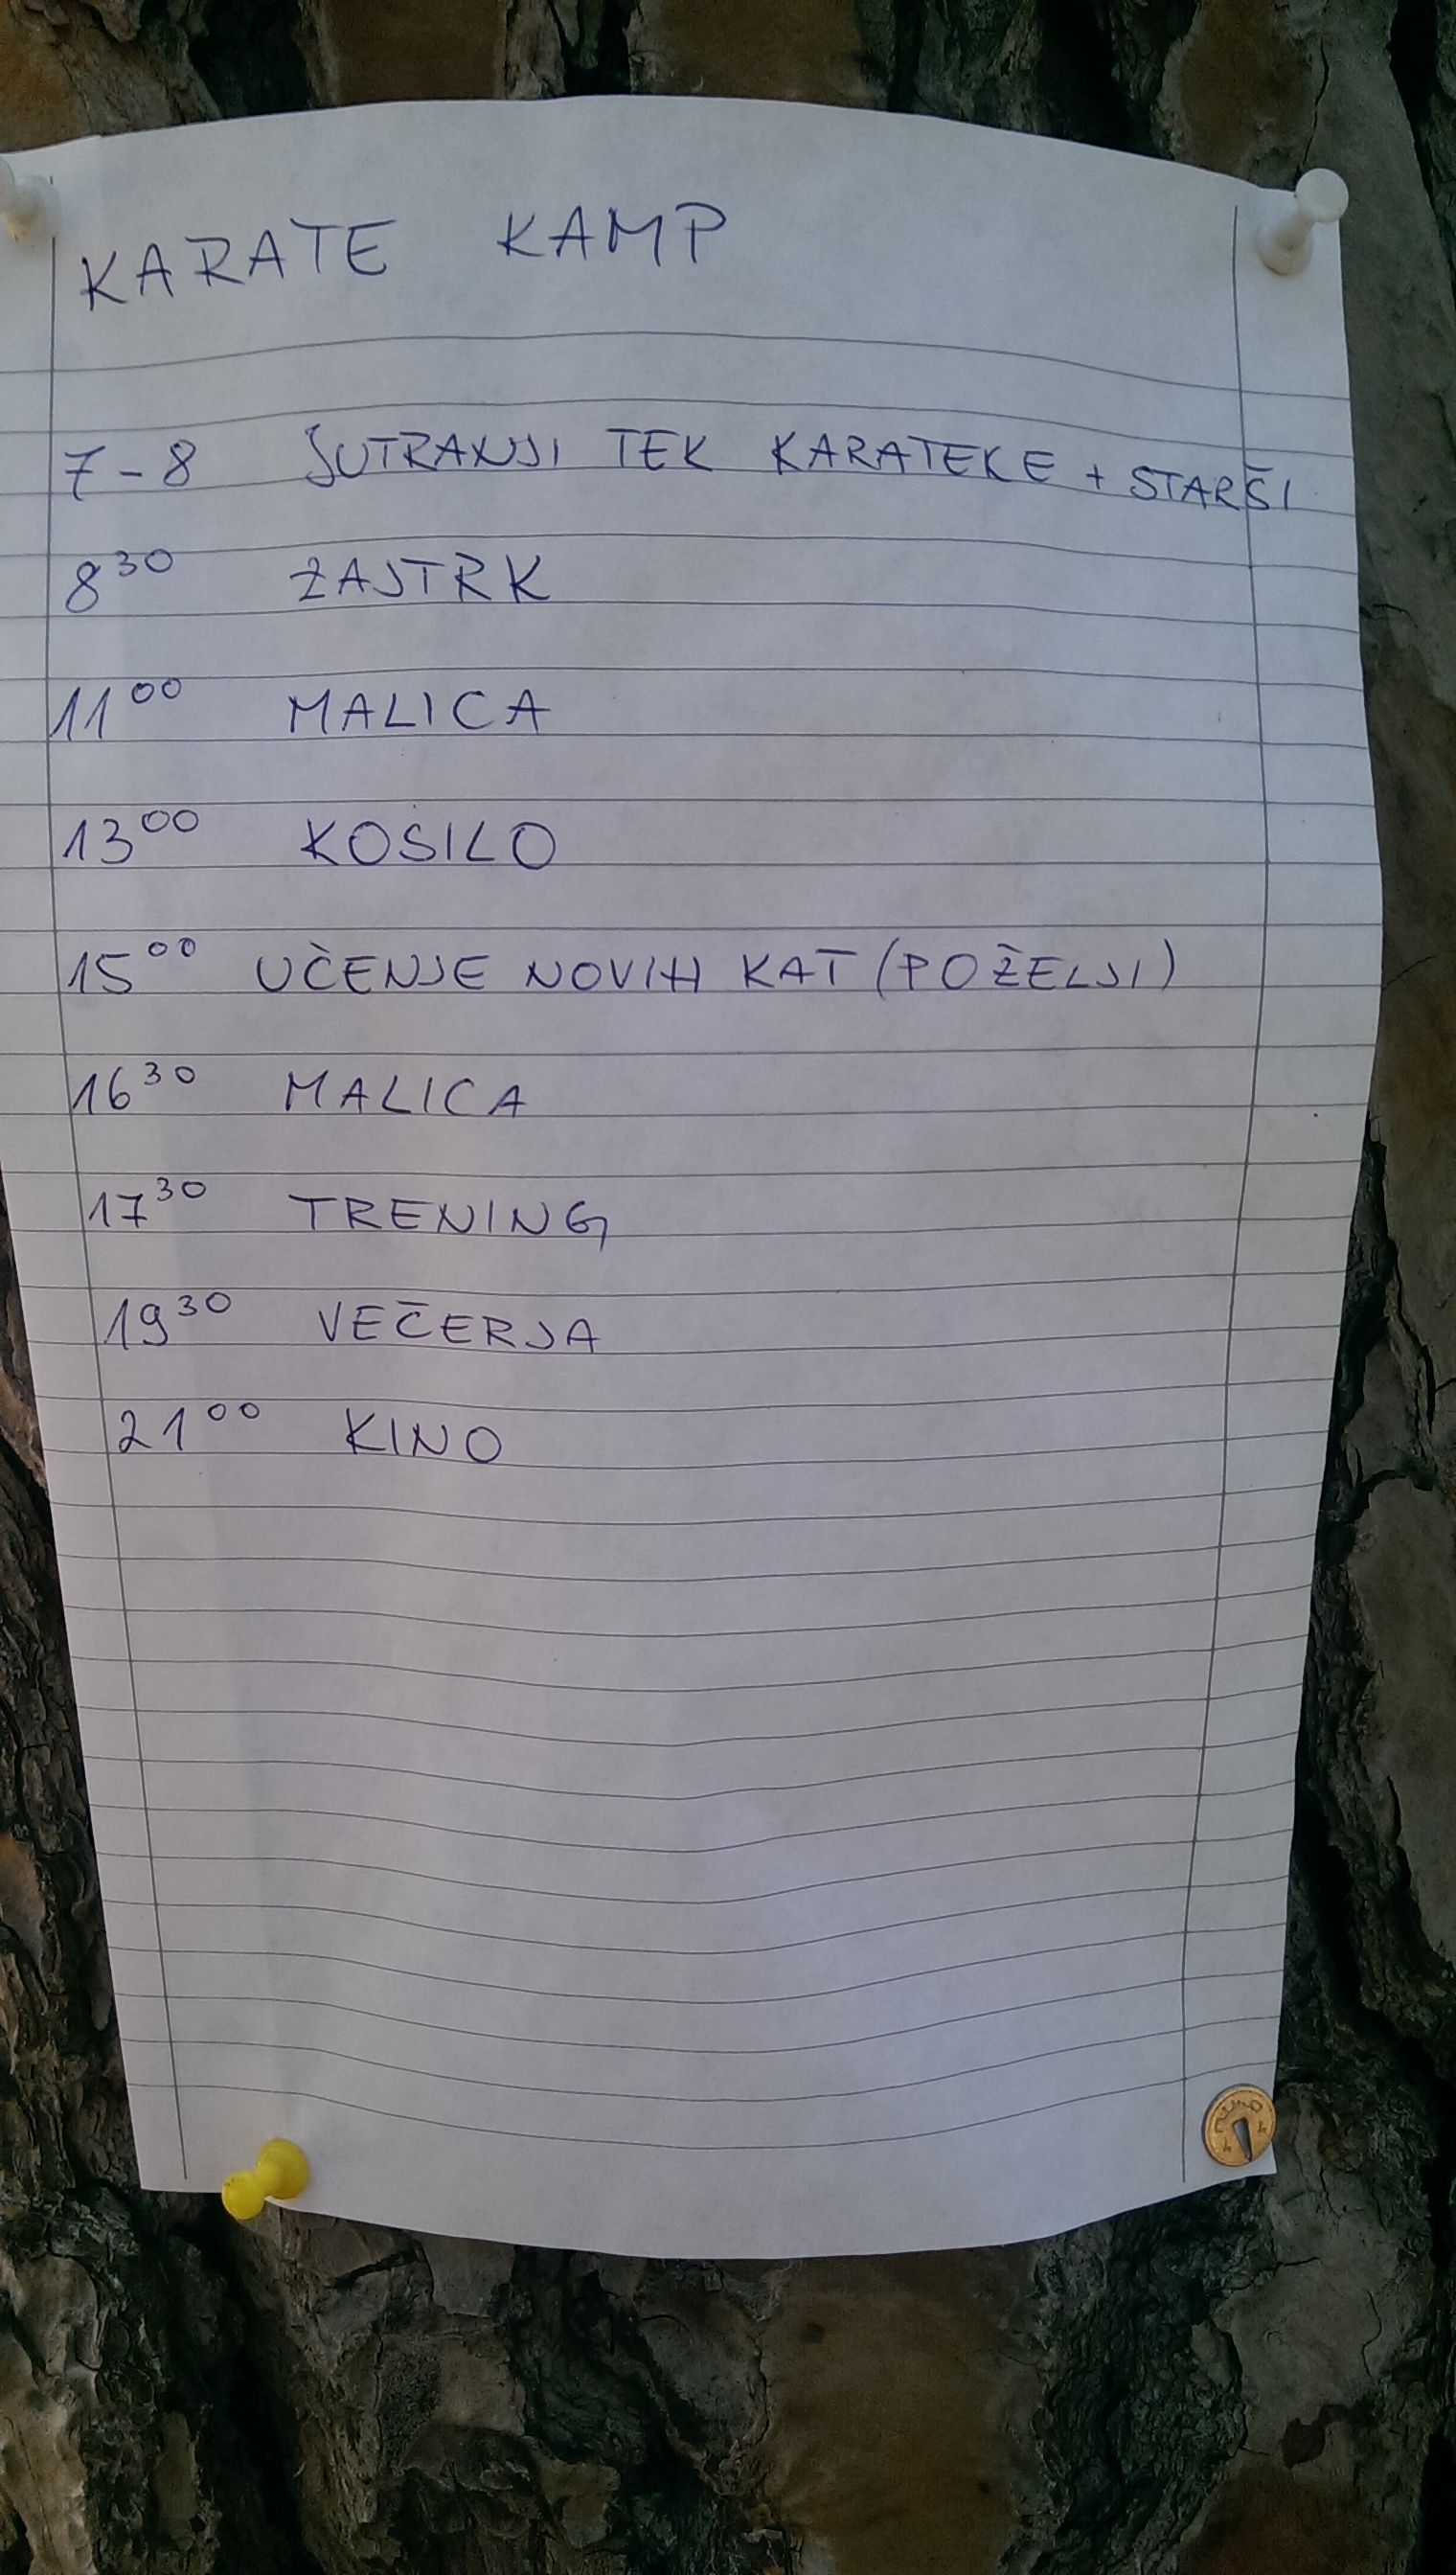 KARATE KAMP
7-8 JUTRANJI TEK KARATEKE + STARŠI
8³⁰ ZAJTRK
11⁰⁰ MALICA
13⁰⁰ KOSILO
15⁰⁰ UČENJE NOVIH KAT (PO ŽELJI)
16³⁰ MALICA
17³⁰ TRENING
19³⁰ VEČERJA
21⁰⁰ KINO